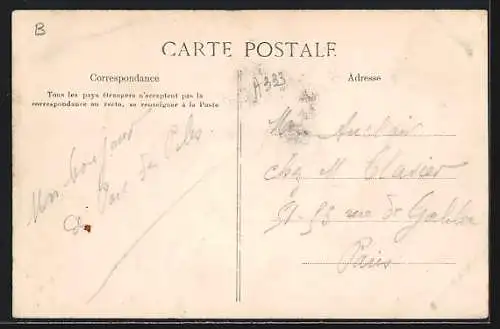 B
CARTE POSTALE
Correspondance
Tous les pays étrangers n'acceptent pas la
correspondance au recto, se renseigner à la Poste
Un bonjour
de
Adresse
A 333
Auclair
chez M
rue de
Paris